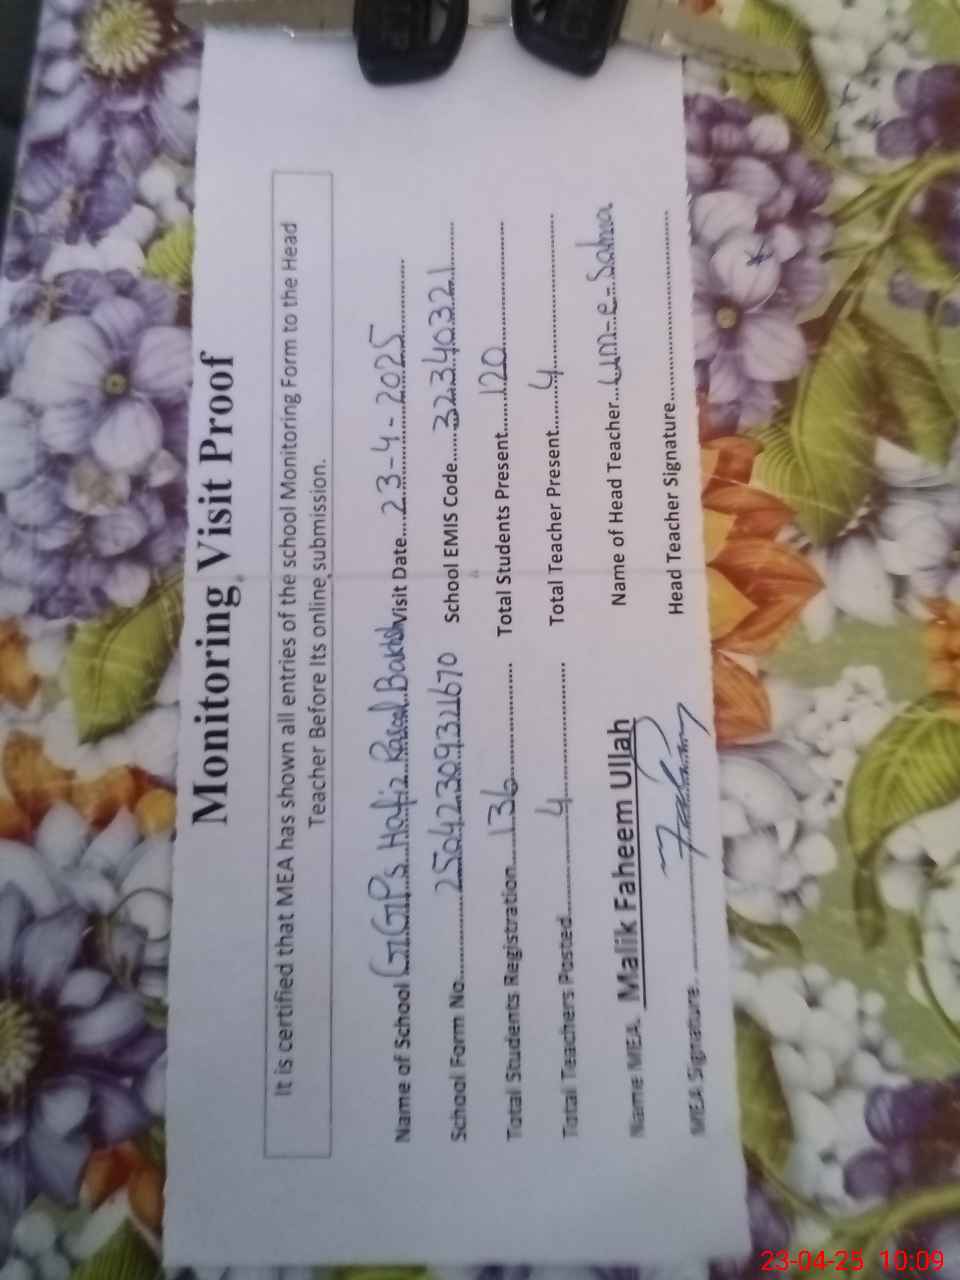 Monitoring Visit Proof
It is certified that MEA has shown all entries of the school Monitoring Form to the Head
Teacher Before Its online submission.
Name of School GGPS Hafiz Rasool Bakhsh Visit Date....23-4-2025
School Form No.........250423093421670 School EMIS Code.....32340321
Total Students Registration.....136 Total Students Present......120
Total Teachers Posted............4 Total Teacher Present.......4
Name MEA. Malik Faheem Ullah Name of Head Teacher...Um-e-Salma
MEA Signature............ Head Teacher Signature............
23-04-25 10:09